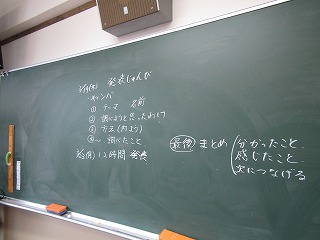 発表じゅんび
・キャンバ
① テーマ 名前
② 調べようと思ったわけ
③ 方法(内より)
④〜 調べたこと
12時間 発表
最後 まとめ
分かったこと、
感じたこと、
次につなげる